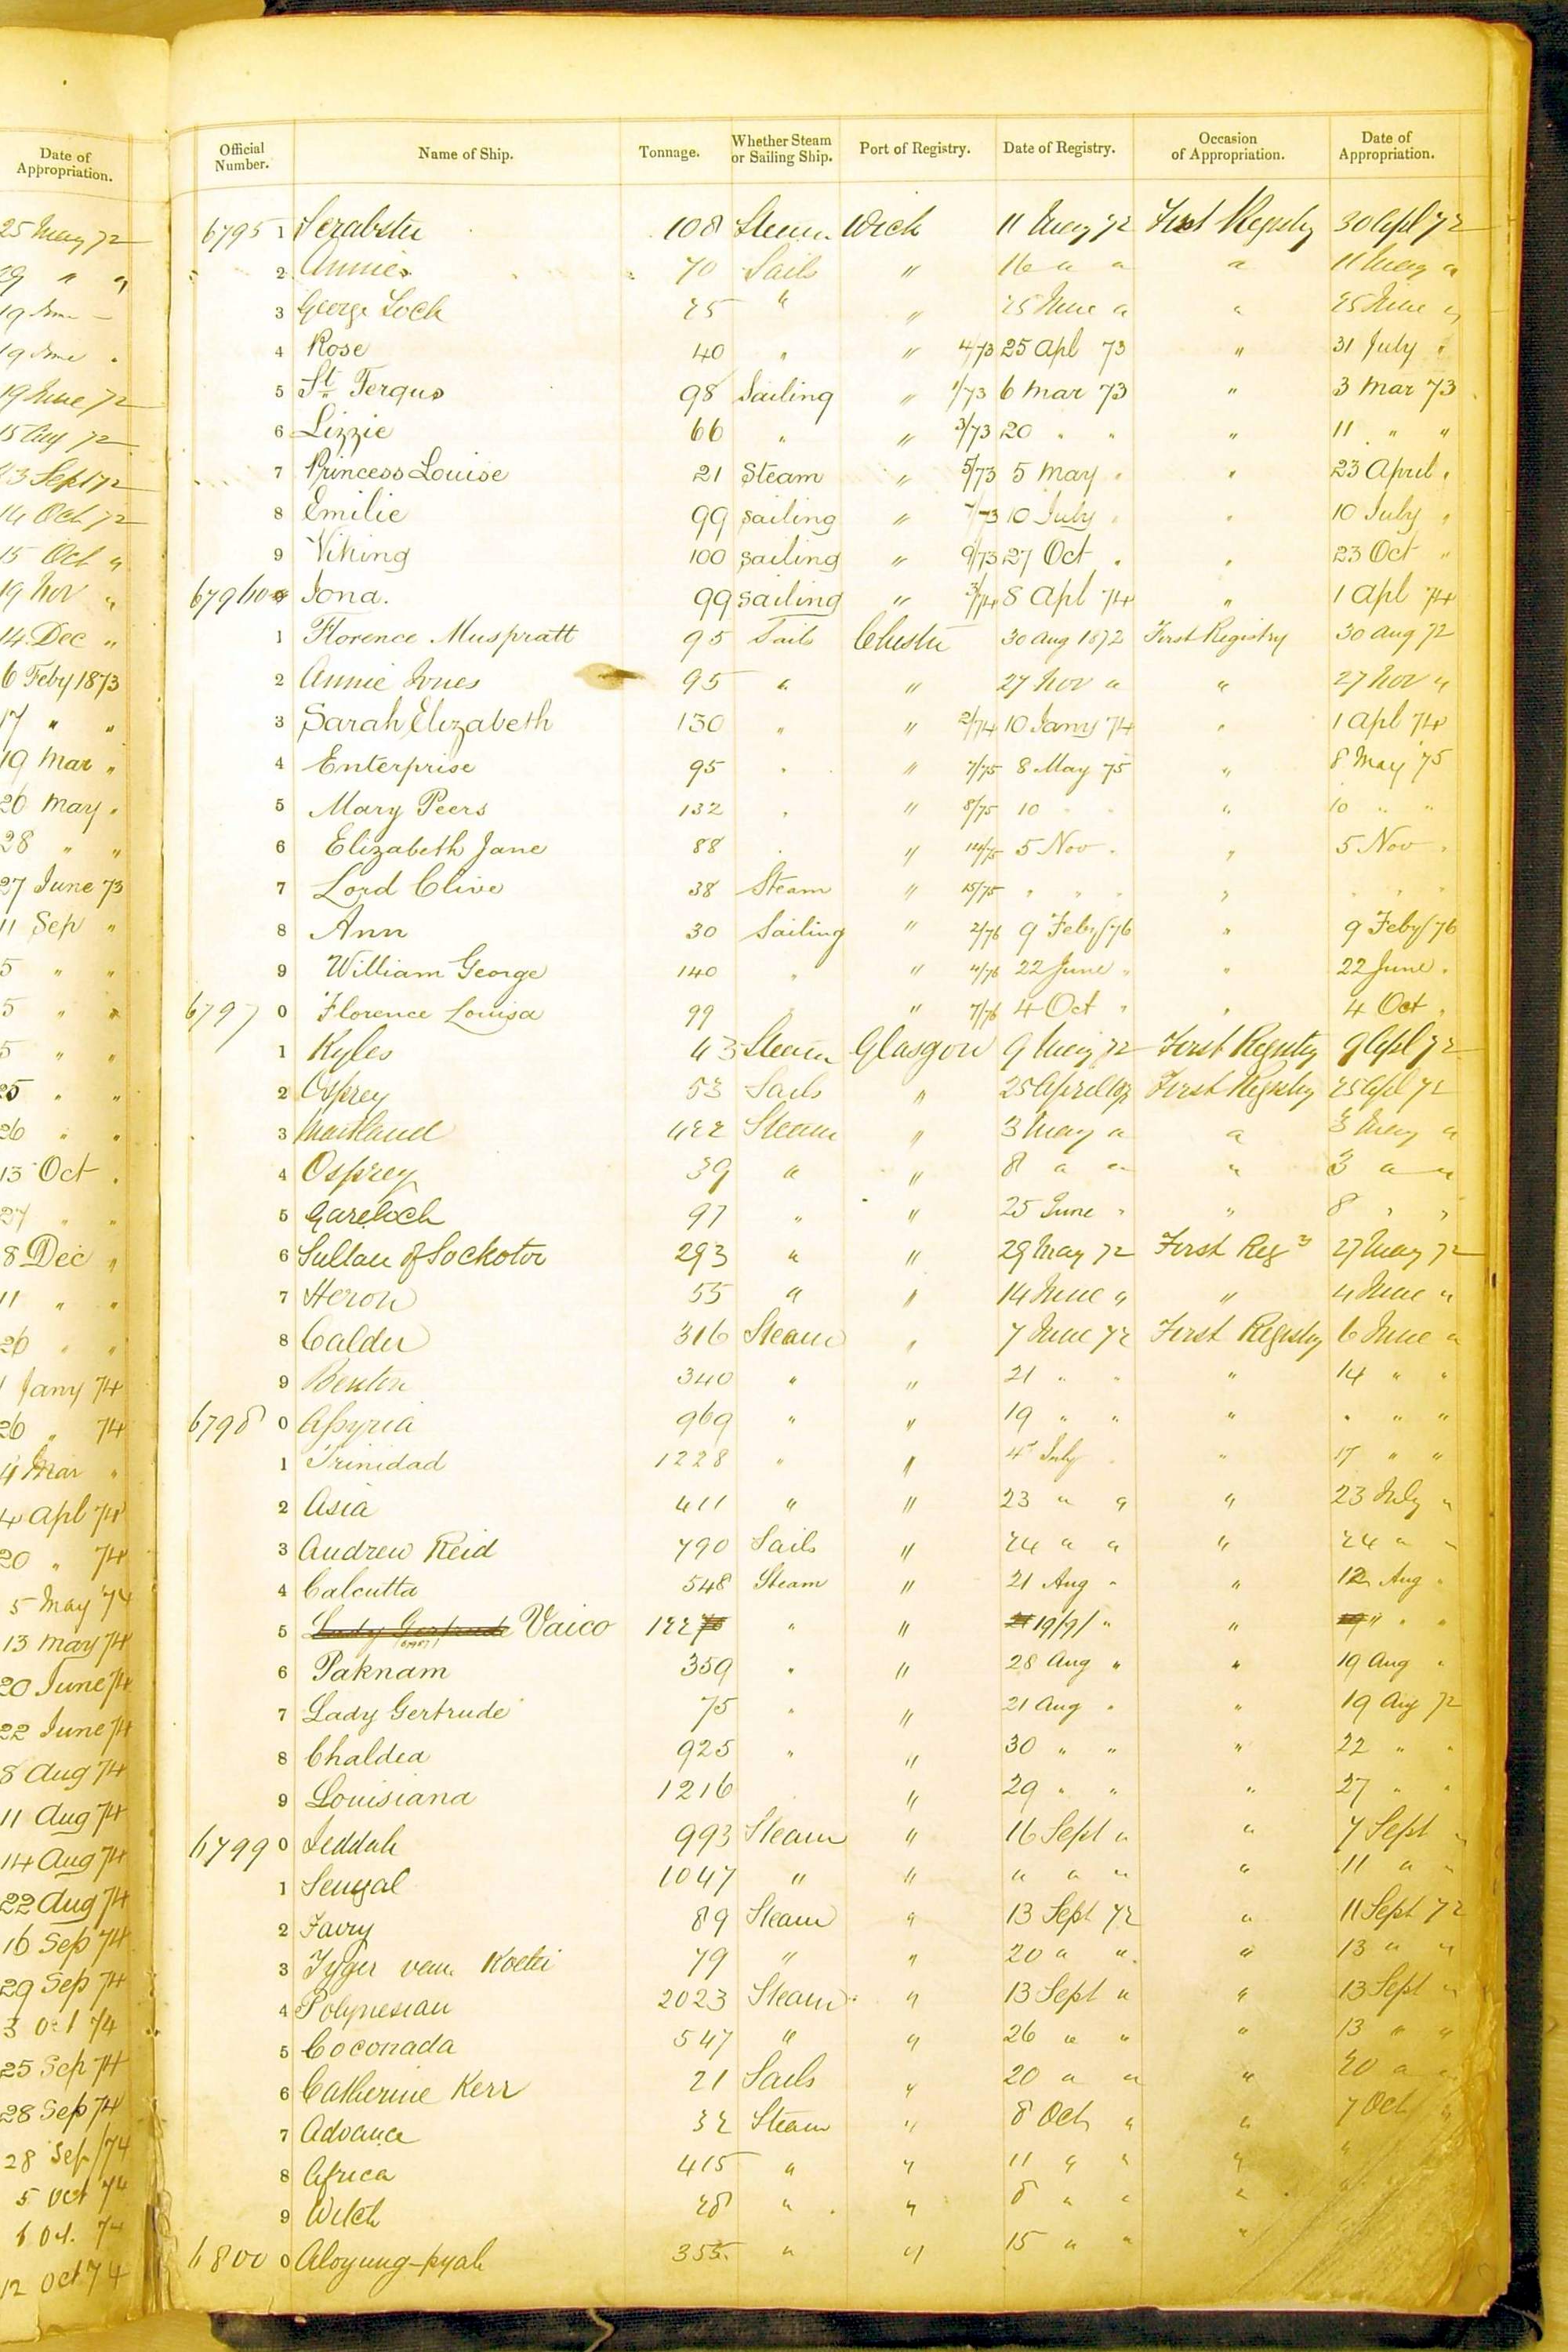 Date of Appropriation.
25 May 72
19 June
19 June
19 June 72
15 Aug 72
23 Sept 72
14 Oct 72
15 Oct "
19 Nov "
14 Dec "
6 Feby 1873
17 " "
19 Mar "
26 May "
28 " "
27 June 73
11 Sep "
5 " "
5 " "
5 " "
25 " "
26 " "
13 Oct "
27 " "
8 Dec "
11 " "
26 " "
1 Jany 74
26 " 74
4 Mar "
4 Apl 74
20 " 74
5 May 74
13 May 74
20 June 74
22 June 74
8 Aug 74
11 Aug 74
14 Aug 74
22 Aug 74
16 Sep 74
29 Sep 74
3 Oct 74
25 Sep 74
28 Sep 74
28 Sep 74
5 Oct 74
6 Oct 74
12 Oct 74
Official Number. Name of Ship. Tonnage. Whether Steam or Sailing Ship. Port of Registry. Date of Registry. Occasion of Appropriation. Date of Appropriation.
6795 1 Scrabster 108 Steam Wick 11 May 72 First Registry 30 Apl 72
2 Annie 70 Sails " 16 " " " 11 May "
3 George Loch 25 " " 25 June " " 25 June "
4 Rose 40 " " 4/73 25 Apl 73 " 31 July "
5 St. Fergus 98 Sailing " 1/73 6 Mar 73 " 3 Mar 73
6 Lizzie 66 " " 3/73 20 " " " 11 " "
7 Princess Louise 21 Steam " 5/73 5 May " " 23 April "
8 Emilie 99 Sailing " 7/73 10 July " " 10 July "
9 Viking 100 Sailing " 9/73 27 Oct " " 23 Oct "
6796 0 Iona. 99 Sailing " 3/74 8 Apl 74 " 1 Apl 74
1 Florence Muspratt 95 Sails Chester 30 Aug 1872 First Registry 30 Aug 72
2 Annie Jones 95 " " 27 Nov " " 27 Nov "
3 Sarah Elizabeth 130 " " 2/74 10 Jany 74 " 1 Apl 74
4 Enterprise 95 " " 7/75 8 May 75 " 8 May 75
5 Mary Peers 132 " " 8/75 10 " " " 10 " "
6 Elizabeth Jane 88 " " 14/75 5 Nov " " 5 Nov "
7 Lord Clive 38 Steam " 15/75 " " " " " " "
8 Ann 30 Sailing " 2/76 9 Feby/76 " 9 Feby/76
9 William George 140 " " 4/76 22 June " " 22 June "
6797 0 Florence Louisa 99 " " 7/76 4 Oct " " 4 Oct "
1 Kyles 43 Steam Glasgow 9 May 72 First Registry 9 Apl 72
2 Osprey 53 Sails " 25 April 1872 First Registry 25 Apl 72
3 Maitland 422 Steam " 3 May " " 3 May "
4 Osprey 39 " " 8 " " " 3 " "
5 Gareloch 97 " " 25 June " " 8 " "
6 Sultan of Sockotoo 293 " " 29 May 72 First Reg 27 May 72
7 Heron 55 " " 14 June " " 4 June "
8 Calder 316 Steam " 7 June 72 First Registry 6 June "
9 Benton 340 " " 21 " " " 14 " "
6798 0 Assyria 969 " " 19 " " " " " "
1 Trinidad 1228 " " 4 July " " 17 " "
2 Asia 411 " " 23 " " " 23 July "
3 Andrew Reid 790 Sails " 24 " " " 24 " "
4 Calcutta 548 Steam " 21 Aug " " 12 Aug "
5 Lady Gertrude Vaico 122 " " 19/9/ " " " " "
6 Paknam 359 " " 28 Aug " " 19 Aug "
7 Lady Gertrude 75 " " 21 Aug " " 19 Aug 72
8 Chaldea 925 " " 30 " " " 22 " "
9 Louisiana 1216 " 29 " " " 27 " "
6799 0 Jeddah 993 Steam " 16 Sept " " 7 Sept "
1 Senegal 1047 " " " " " " 11 " "
2 Fairy 89 Steam " 13 Sept 72 " 11 Sept 72
3 Tyger van Koetei 79 " " 20 " " " 13 " "
4 Polynesian 2023 Steam " 13 Sept " " 13 Sept "
5 Coconada 547 " " 26 " " " 13 " "
6 Catherine Kerr 21 Sails " 20 " " " 20 " "
7 Advance 32 Steam " 8 Oct " " 7 Oct "
8 Africa 415 " " 11 " " " "
9 Witch 28 " " 8 " " "
6800 0 Aloyung-pyah 355 " " 15 " " "